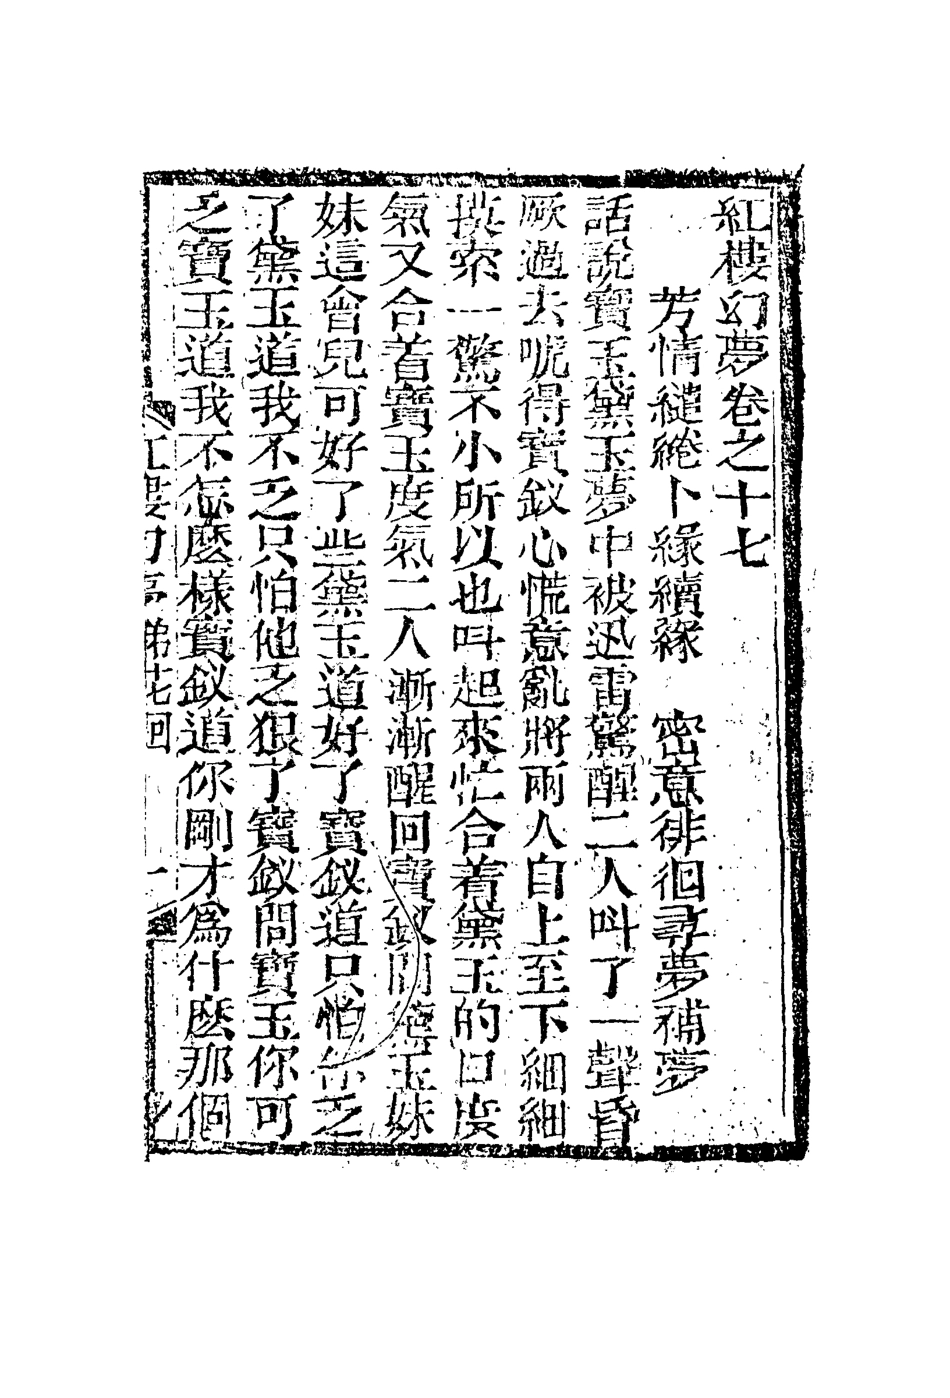 紅樓幻夢卷之十七
芳情繾綣卜緣續緣　密意徘徊尋夢補夢
話說寶玉黛玉夢中被迅雷驚醒二人呌了一聲昏
厥過去唬得寶釵心慌意亂將兩人自上至下細細
摸索一驚不小所以也呌起來忙合着黛玉的口度
氣又合着寶玉度氣二人漸漸醒回寶釵問黛玉妹
妹這會兒可好了些黛玉道好了寶釵道只怕你乏
了黛玉道我不乏只怕他乏狠了寶釵問寶玉你可
乏寶玉道我不怎麼樣寶釵道你剛才爲什麽那個
紅樓幻夢 第十七回 一